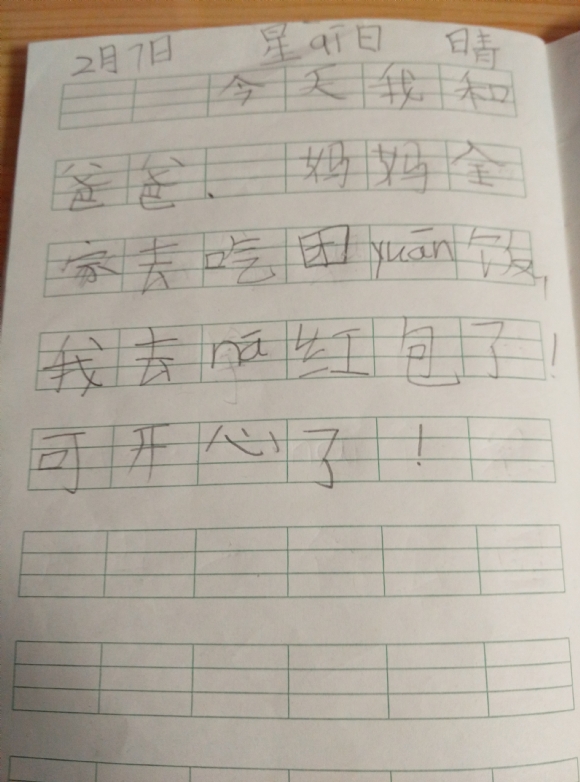 2月7日 星qī日 晴
今天我和
爸爸、妈妈全
家去吃团yuān饭,
我去nā红包了!
可开心了!